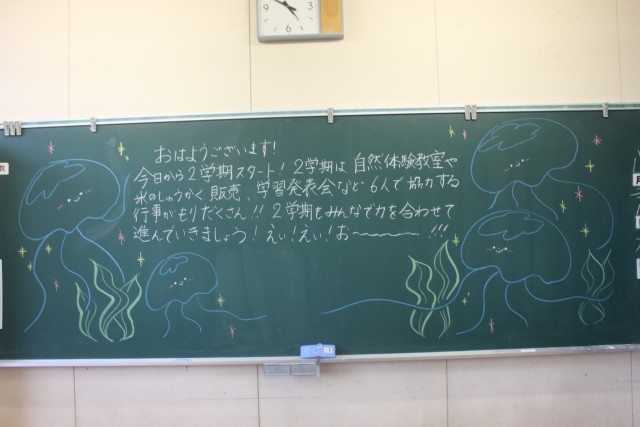 おはようございます!
今日から2学期スタート! 2学期は 自然体験教室や
米のしゅうかく、販売、学習発表会など 6人で協力する
行事がもりだくさん!! 2学期もみんなで力を合わせて
進んでいきましょう! えい!えい!お〜〜〜〜 !!!